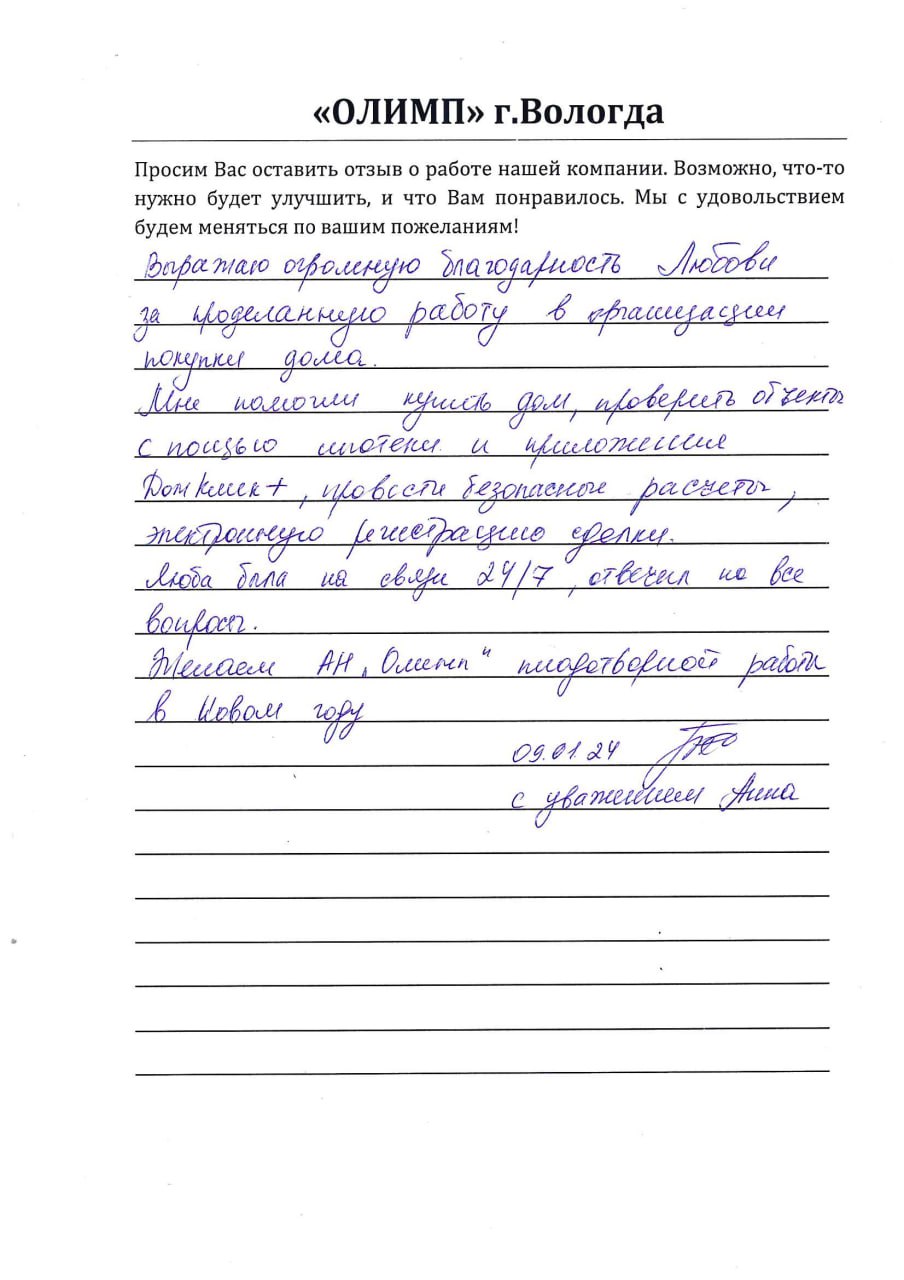 «ОЛИМП» г.Вологда
Просим Вас оставить отзыв о работе нашей компании. Возможно, что-то
нужно будет улучшить, и что Вам понравилось. Мы с удовольствием
будем меняться по вашим пожеланиям!
Выражаю огромную благодарность Любови
за проделанную работу в организации
покупки дома.
Мне помогли купить дом, проверить объекты
с пощью ипотеки и приложения
ДомКлик+, провести безопасные расчеты,
электронную регистрацию сделки.
Люба была на связи 24/7, отвечал на все
вопросы.
Желаем АН „Олимп“ плодотворной работы
в Новом году
09.01.24
с уважением Анна